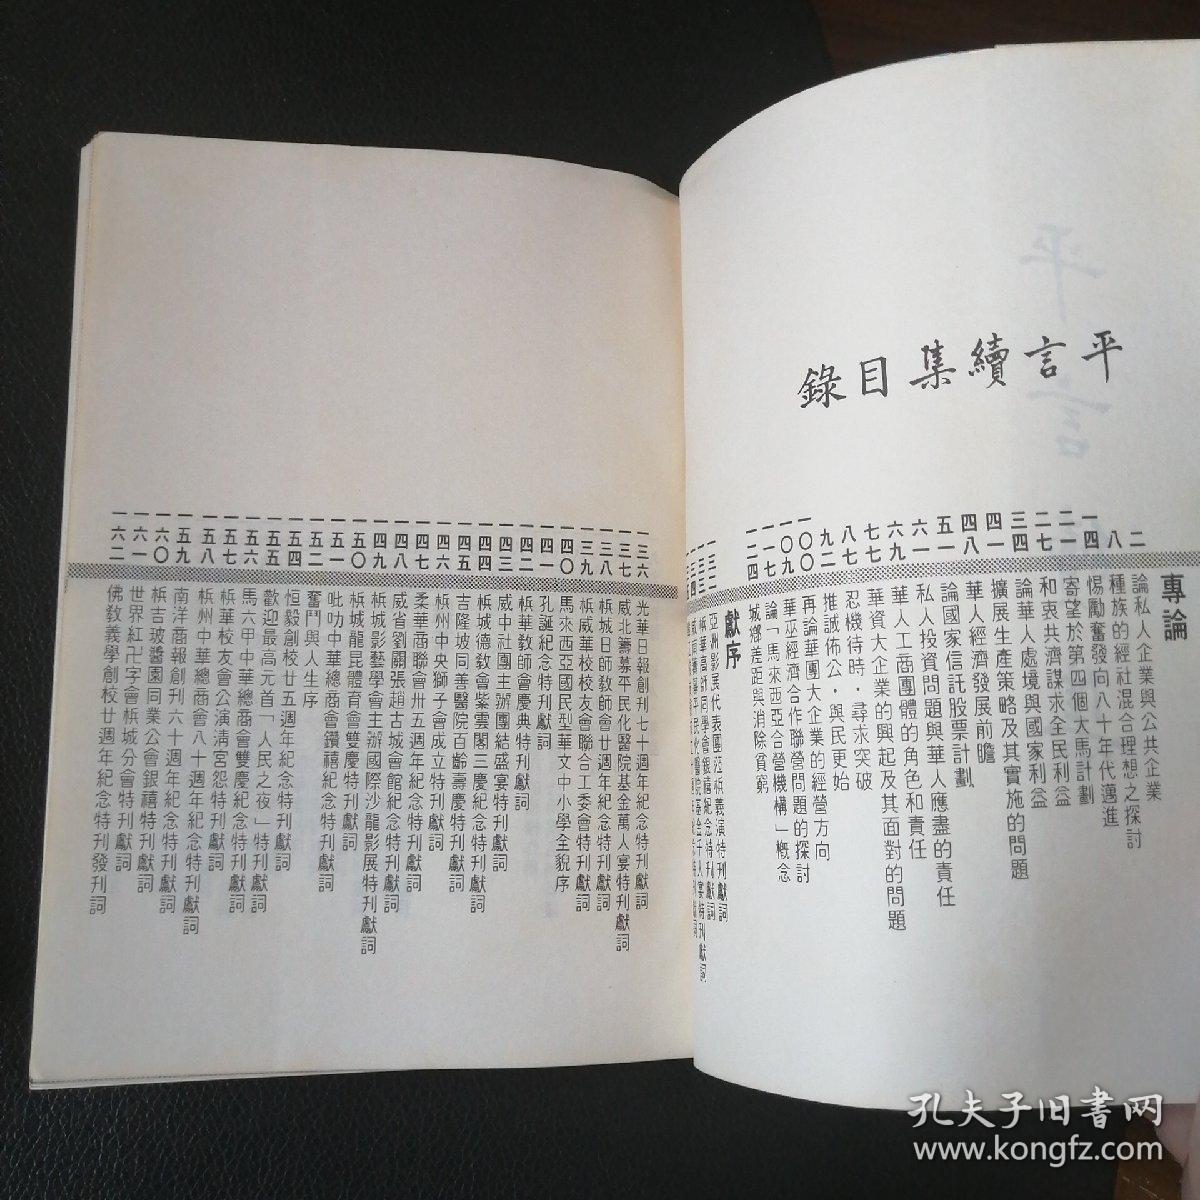 平言續集目錄
專論
二 論私人企業與公共企業
八 種族的經社混合理想之探討
一四 惕勵奮發向八十年代邁進
二一 寄望於第四個大馬計劃
二七 和衷共濟謀求全民利益
三四 論華人處境與國家利益
四一 擴展生產策略及其實施的問題
四八 華人經濟發展前瞻
五一 論國家信託股票計劃
六一 私人投資問題與華人應盡的責任
六九 華人工商團體的角色和責任
七七 華資大企業的興起及其面對的問題
八七 忍機待時·尋求突破
九二 推誠佈公·與民更始
一〇〇 再論華團大企業的經營方向
一〇九 華巫經濟合作聯營問題的探討
一一七 論「馬來西亞合營機構」概念
一二四 城鄉差距與消除貧窮
獻序
一三二 亞洲影展代表團蒞梹義演特刊獻詞
一三三 梹華高師同學會銀禧紀念特刊獻詞
一三六 光華日報創刊七十週年紀念特刊獻詞
一三七 威北籌募平民化醫院基金萬人宴特刊獻詞
一三八 梹城日師教師會廿週年紀念特刊獻詞
一三九 梹威華校校友會聯合工委會特刊獻詞
一四〇 馬來西亞國民型華文中小學全貌序
一四一 孔誕紀念特刊獻詞
一四二 梹華教師會慶典特刊獻詞
一四三 威中社團主辦團結盛宴特刊獻詞
一四四 梹城德教會紫雲閣三慶紀念特刊獻詞
一四五 吉隆坡同善醫院百齡壽慶特刊獻詞
一四六 梹州中央獅子會成立特刊獻詞
一四七 柔華商聯會卅五週年紀念特刊獻詞
一四八 威省劉關張趙古城會館紀念特刊獻詞
一四九 梹城影藝學會主辦國際沙龍影展特刊獻詞
一五〇 梹城龍昆體育會雙慶特刊獻詞
一五一 吡叻中華總商會鑽禧紀念特刊獻詞
一五二 奮鬥與人生序
一五四 恒毅創校廿五週年紀念特刊獻詞
一五五 歡迎最高元首「人民之夜」特刊獻詞
一五六 馬六甲中華總商會雙慶紀念特刊獻詞
一五七 梹華校友會公演清宮怨特刊獻詞
一五八 梹州中華總商會八十週年紀念特刊獻詞
一五九 南洋商報創刊六十週年紀念特刊獻詞
一六〇 梹吉玻醬園同業公會銀禧特刊獻詞
一六一 世界紅卍字會梹城分會特刊獻詞
一六二 佛教義學創校廿週年紀念特刊發刊詞
孔夫子旧书网
www.kongfz.com